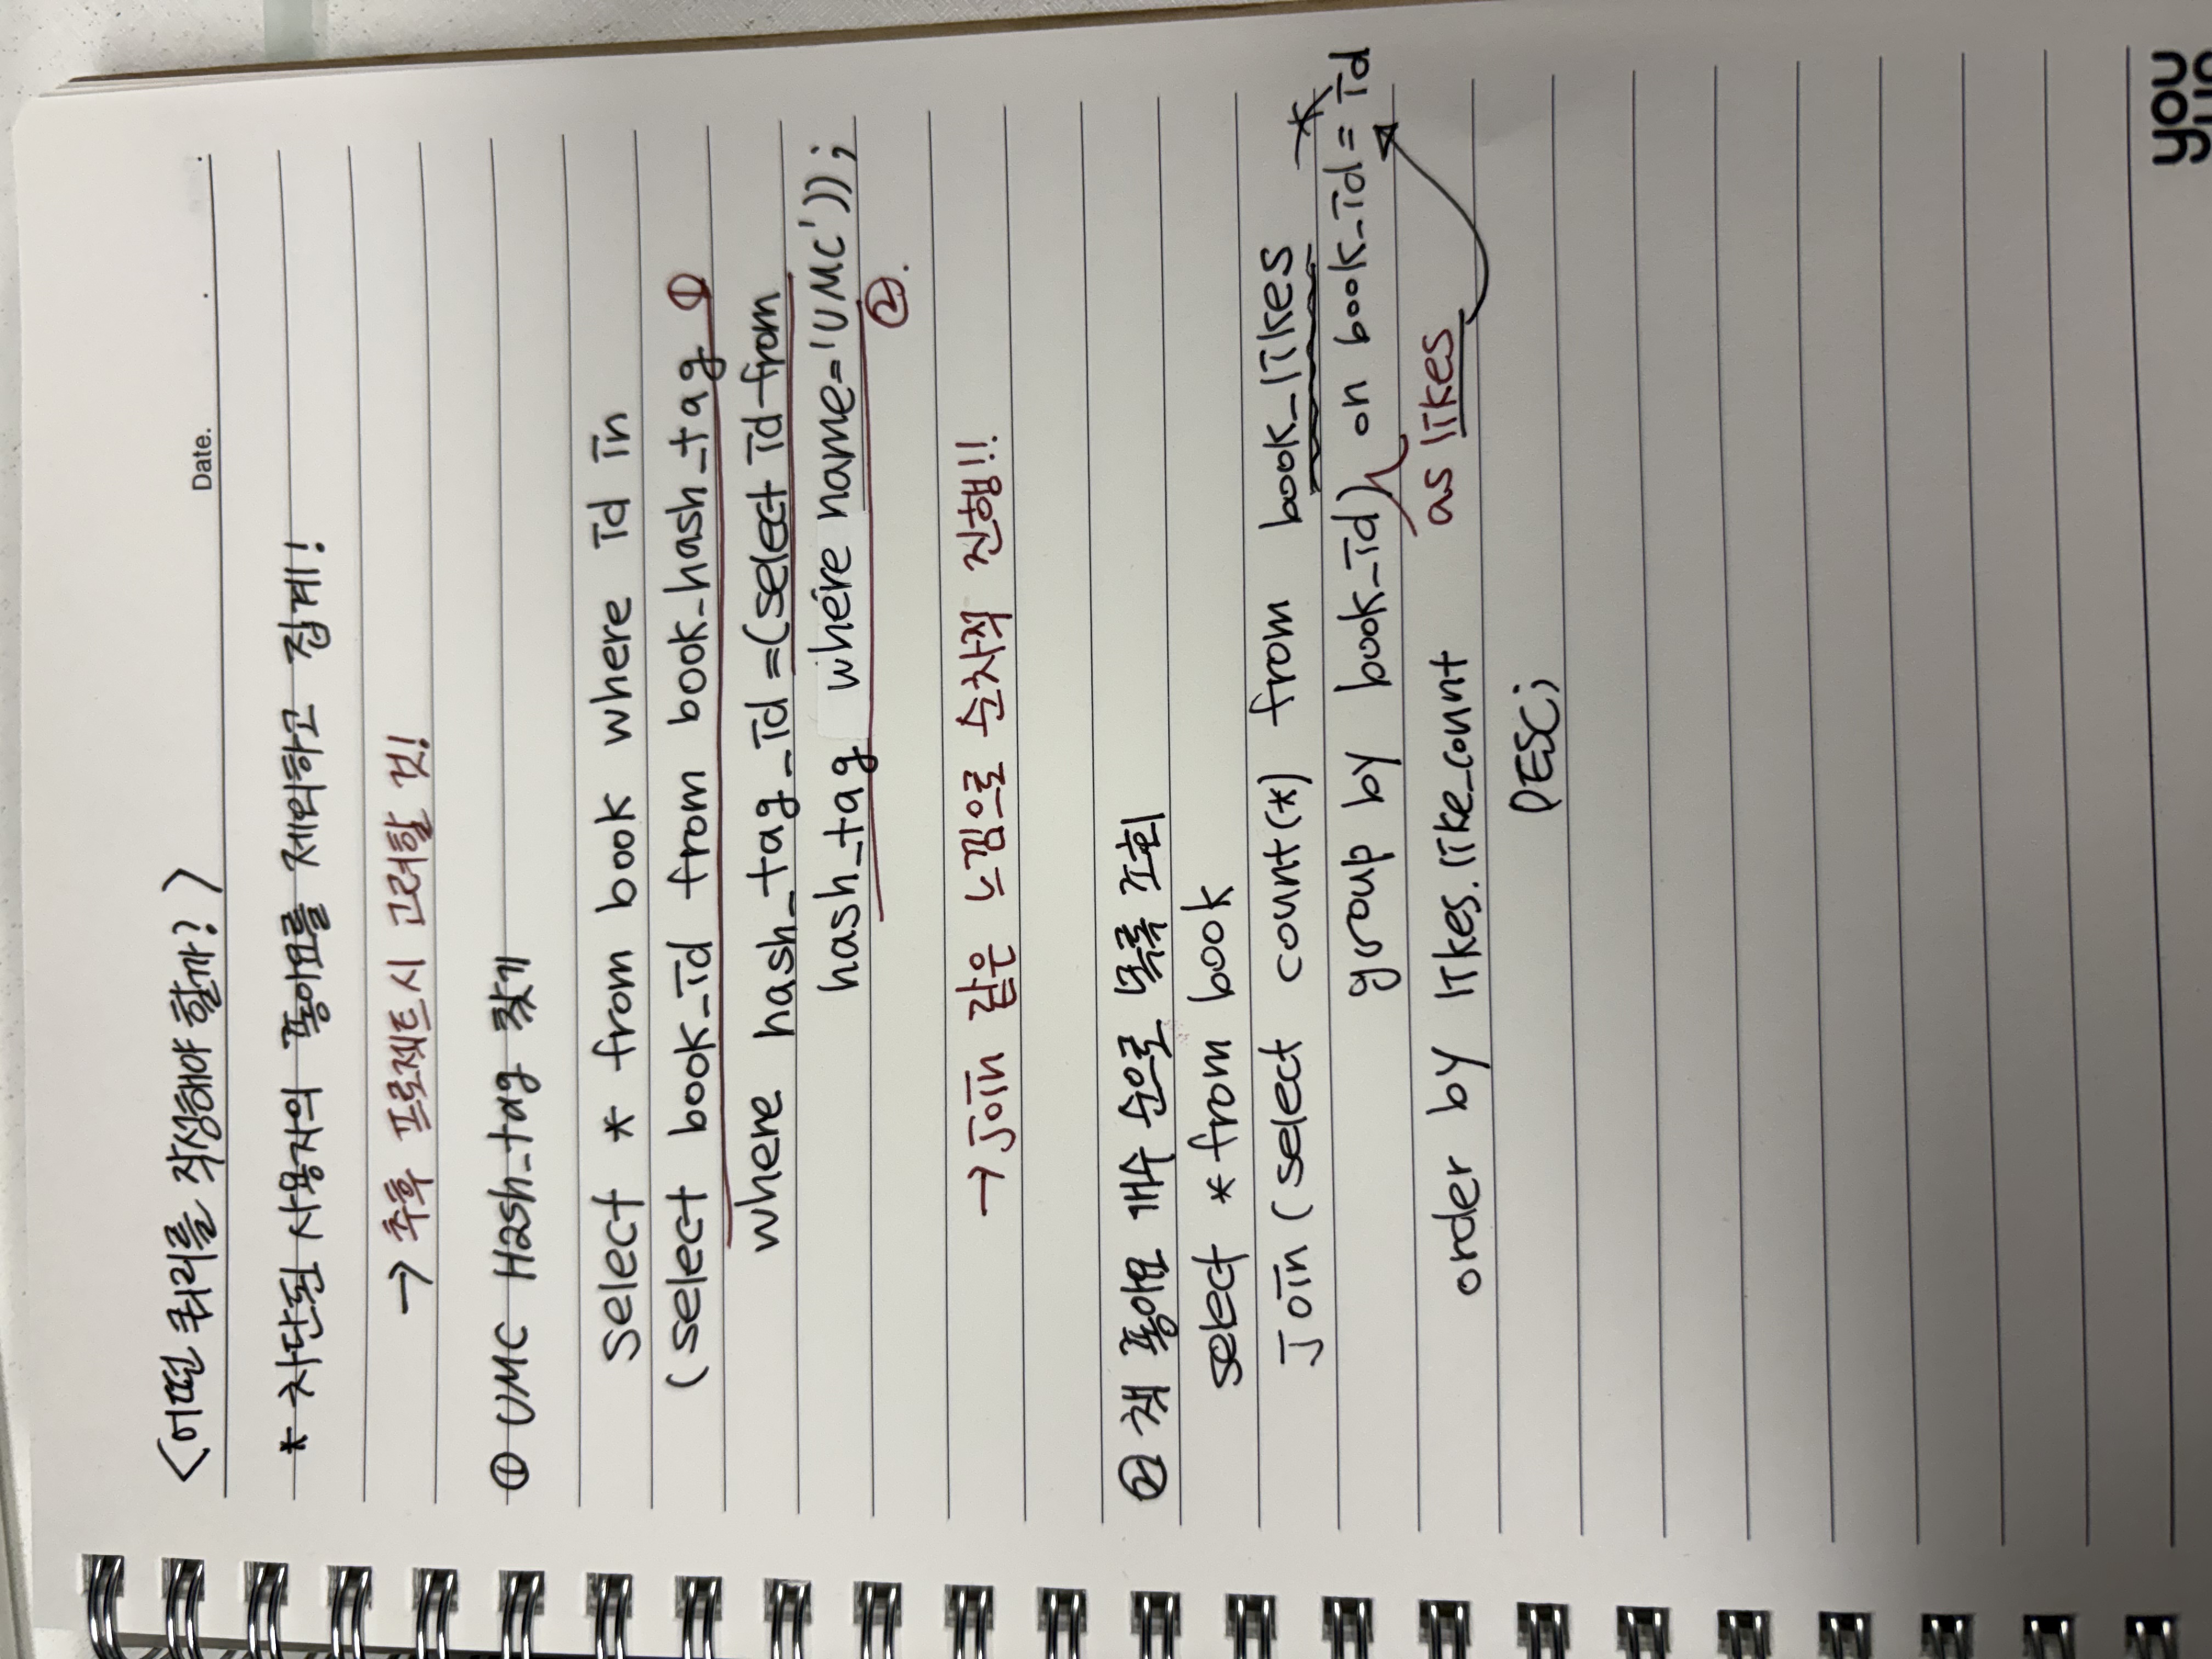 <어떤 쿼리를 작성해야 할까?>
Date. . .
* 차단된 사용자의 좋아요를 제외하고 집계!
→ 추후 프로젝트시 고려할 것!
① UMC Hash_tag 찾기
select * from book where id in
(select book_id from book_hash_tag ①
where hash_tag_id =(select id from
hash_tag where name='UMC'));
②.
→ join 같은 느낌으로 순차적 진행!!
② 책 좋아요 개수 순으로 목록 조회
select * from book
join (select count(*) from book_likes
group by book_id) on book_id = id
as likes
order by likes.like_count
DESC;
you